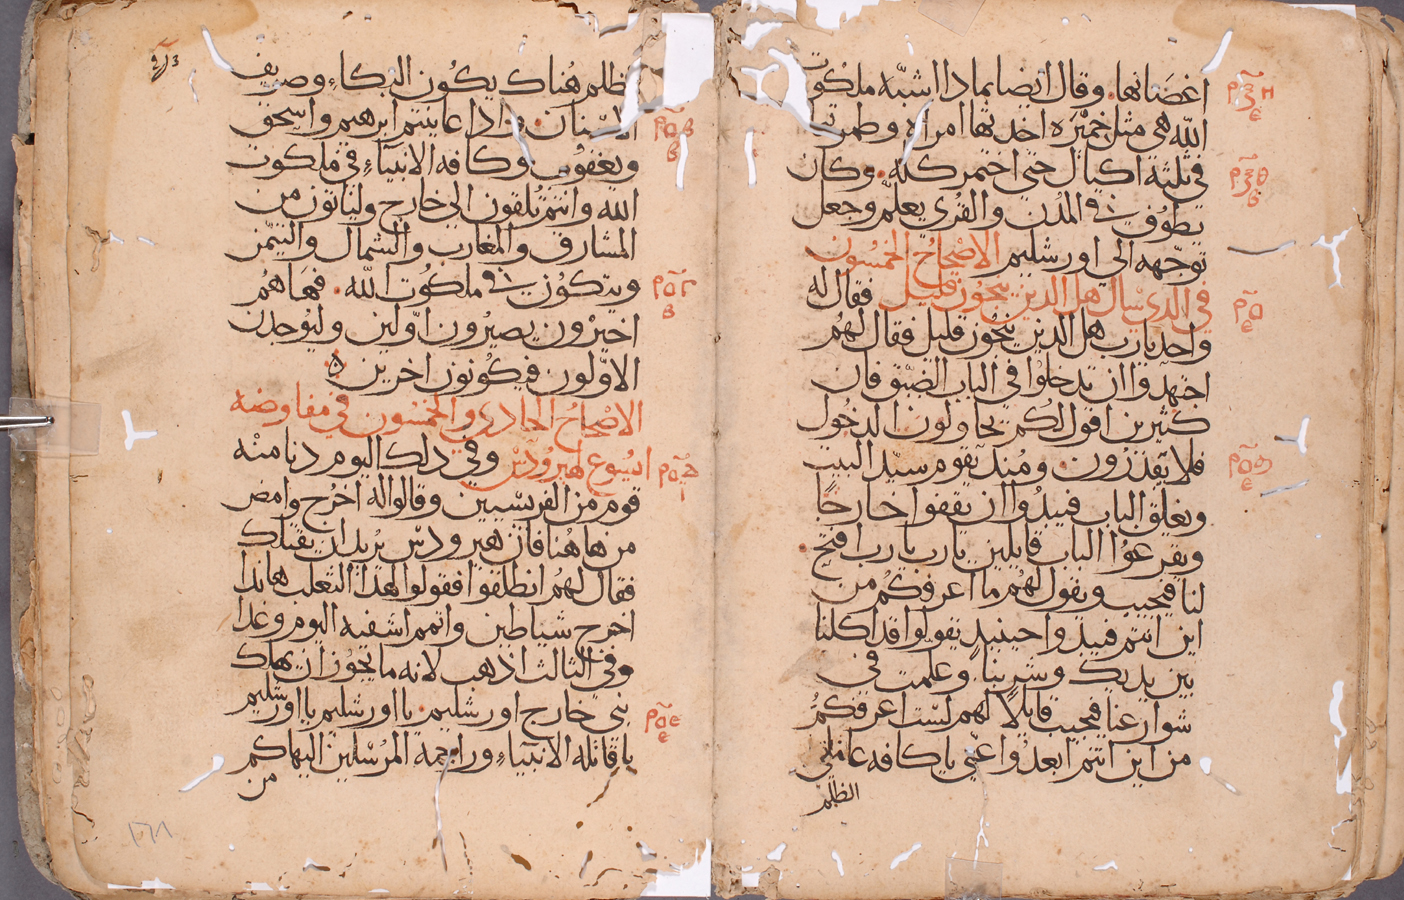 اغصانها. وقال ايضا بماذا اشبه ملكوت
الله هي مثل خميره اخذتها امراه وطمرتها
في ثلثة اكيال حتى اختمر كله. وكان
يطوف في المدن والقرى يعلم وجعل
توجهه الى اورشليم الاصحاح الخمسون
في الذي سال هل الذين ينجون قليل فقال له
واحد يارب هل الذين ينجون قليل فقال لهم
اجتهدوا ان تدخلوا في الباب الضيق فان
كثيرين اقول لكم يحاولون الدخول
فلا يقدرون. ومنذ يقوم سيد البيت
ويغلق الباب فيبدوا ان تقفوا خارجا
وتقرعوا الباب قايلين يارب يارب افتح
لنا فيجيب ويقول لهم ما اعرفكم من
اين انتم فيبدوا حينيذ تقولوا قد اكلنا
بين يديك وشربنا. وعلمت في
شوارعنا فيجيب قايلا لهم لست اعرفكم
من اين انتم ابعدوا عني يا كافه عاملي
الظلم
الظلم هناك يكون البكاء وصريف
الاسنان. اذا عاينتم ابرهيم واسحق
ويعقوب وكافه الانبياء في ملكوت
الله وانتم تلقون الى خارج ولياتون من
المشارق والمغارب والشمال واليمن
ويتكون في ملكوت الله. فها هم
اخيرون يصيرون اولين وليوجدن
الاولون فيكونون اخرين ه
الاصحاح الحادي والخمسون في مفاوضه
ايسوع لهيرودس وفي ذلك اليوم دنا منه
قوم من الفريسيين وقالوا له اخرج وامض
من هاهنا فان هيرودس يريد ان يقتلك
فقال لهم انطلقوا فقولوا لهذا الثعلب هانذا
اخرج شياطين واتمم اشفيه اليوم وغدا
وفي الثالث اذهب لانه ما يجوز ان يهلك
نبي خارج اورشليم. يا اورشليم يا اورشليم
يا قاتله الانبياء وراجمه المرسلين اليها كم
من